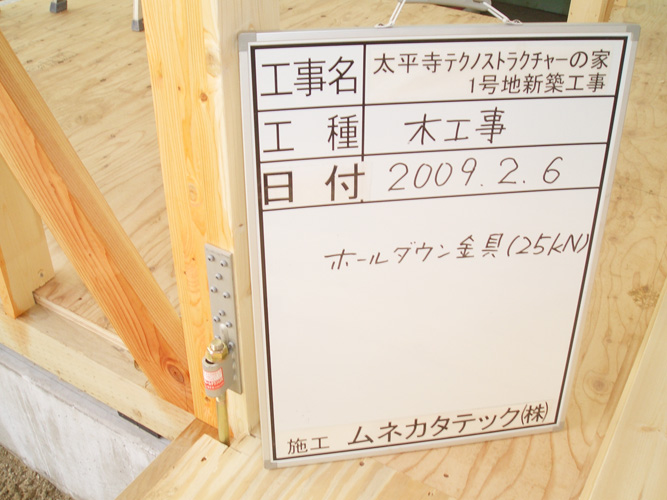 工事名 太平寺テクノストラクチャーの家
1号地新築工事
工種 木工事
日付 2009.2.6
ホールダウン金具(25kN)
施工 ムネカタテック(株)